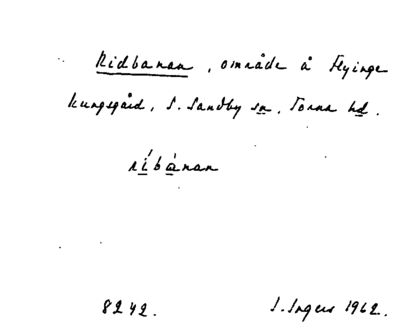 Ridbanan, område å Flyinge
kungsgård, S. Sandby sn, Torna hd.
ríbànan
8242. I. Ingers 1962.